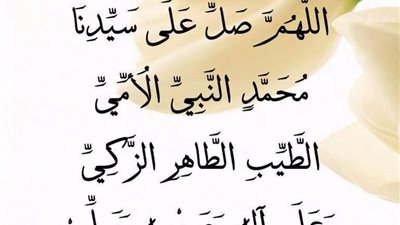 اللَّهُمَّ صَلِّ عَلَى سَيِّدِنَا
مُحَمَّدٍ النَّبِيِّ الْأُمِّيِّ
الطَّيِّبِ الطَّاهِرِ الزَّكِيِّ